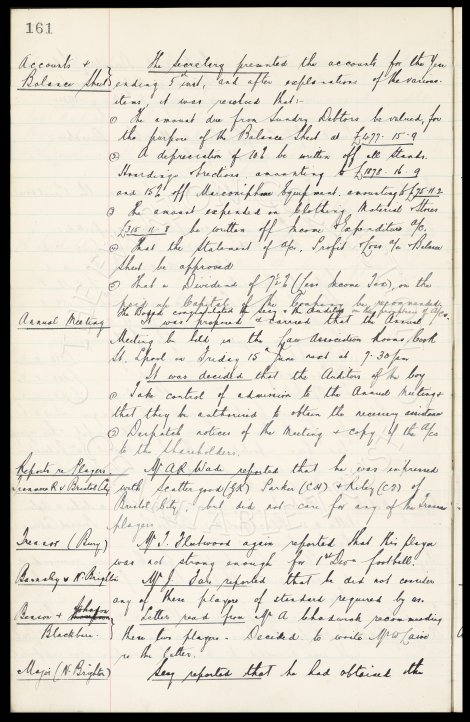 161
Accounts &
Balance Sheet
The Secretary presented the accounts for the Year
ending 5th inst, and after explanations of the various
items, it was resolved that:-
① The amount due from Sundry Debtors be valued, for
the purpose of the Balance Sheet at £477-15-9
② A depreciation of 10% be written off all Stands
Hoardings & Erections, amounting to £1078.16.9
and 15% off Marconiphone Equipment, amounting to £75.11.2
③ The amount expended on Clothing, Material & Stores
£315.11.8 be written off Income & Expenditure a/c.
④ That the Statement of a/cs, Profit & Loss a/c & Balance
Sheet be approved
⑤ That a Dividend of 7½% (less Income Tax), on the
paid up Capital of the Company be recommended.
The Board congratulated the Secy & the Auditors on the a/cs.
Annual Meeting
It was proposed & carried that the Annual
Meeting be held in the Law Association Rooms, Cook
St. L'pool on Friday 15th June next at 7-30 pm
It was decided that the Auditors of the Coy
① Take control of admission to the Annual Meeting &
that they be authorised to obtain the necessary assistance
② Despatch notices of the Meeting & copy of the a/cs
to the Shareholders.
Reports re Players
Tranmere R v Bristol City
Mr A.R. Wade reported that he was impressed
with Scattergood (GK) Parker (CH) & Riley (CF) of
Bristol City, but did not care for any of the Tranmere
players
(Bury)
Mr J. Fleetwood again reported that this player
was not strong enough for 1st Divn football.
Barnsley v N. Brighton
Mr J. Sale reported that he did not consider
any of these players of standard required by us.
Benson & Johnson
Blackburn.
Letter read from Mr A Chadwick recommending
these two players. Decided to write Mr
re the latter.
Major (N. Brighton)
Secy reported that he had obtained the